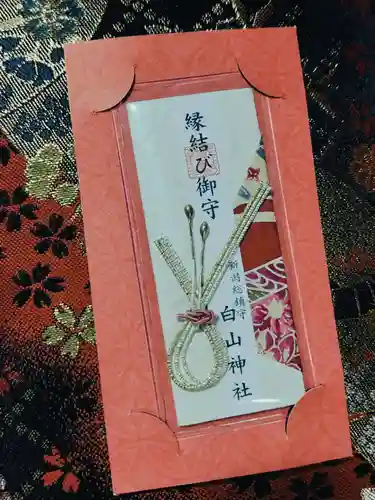 縁結び御守
新潟総鎮守
白山神社